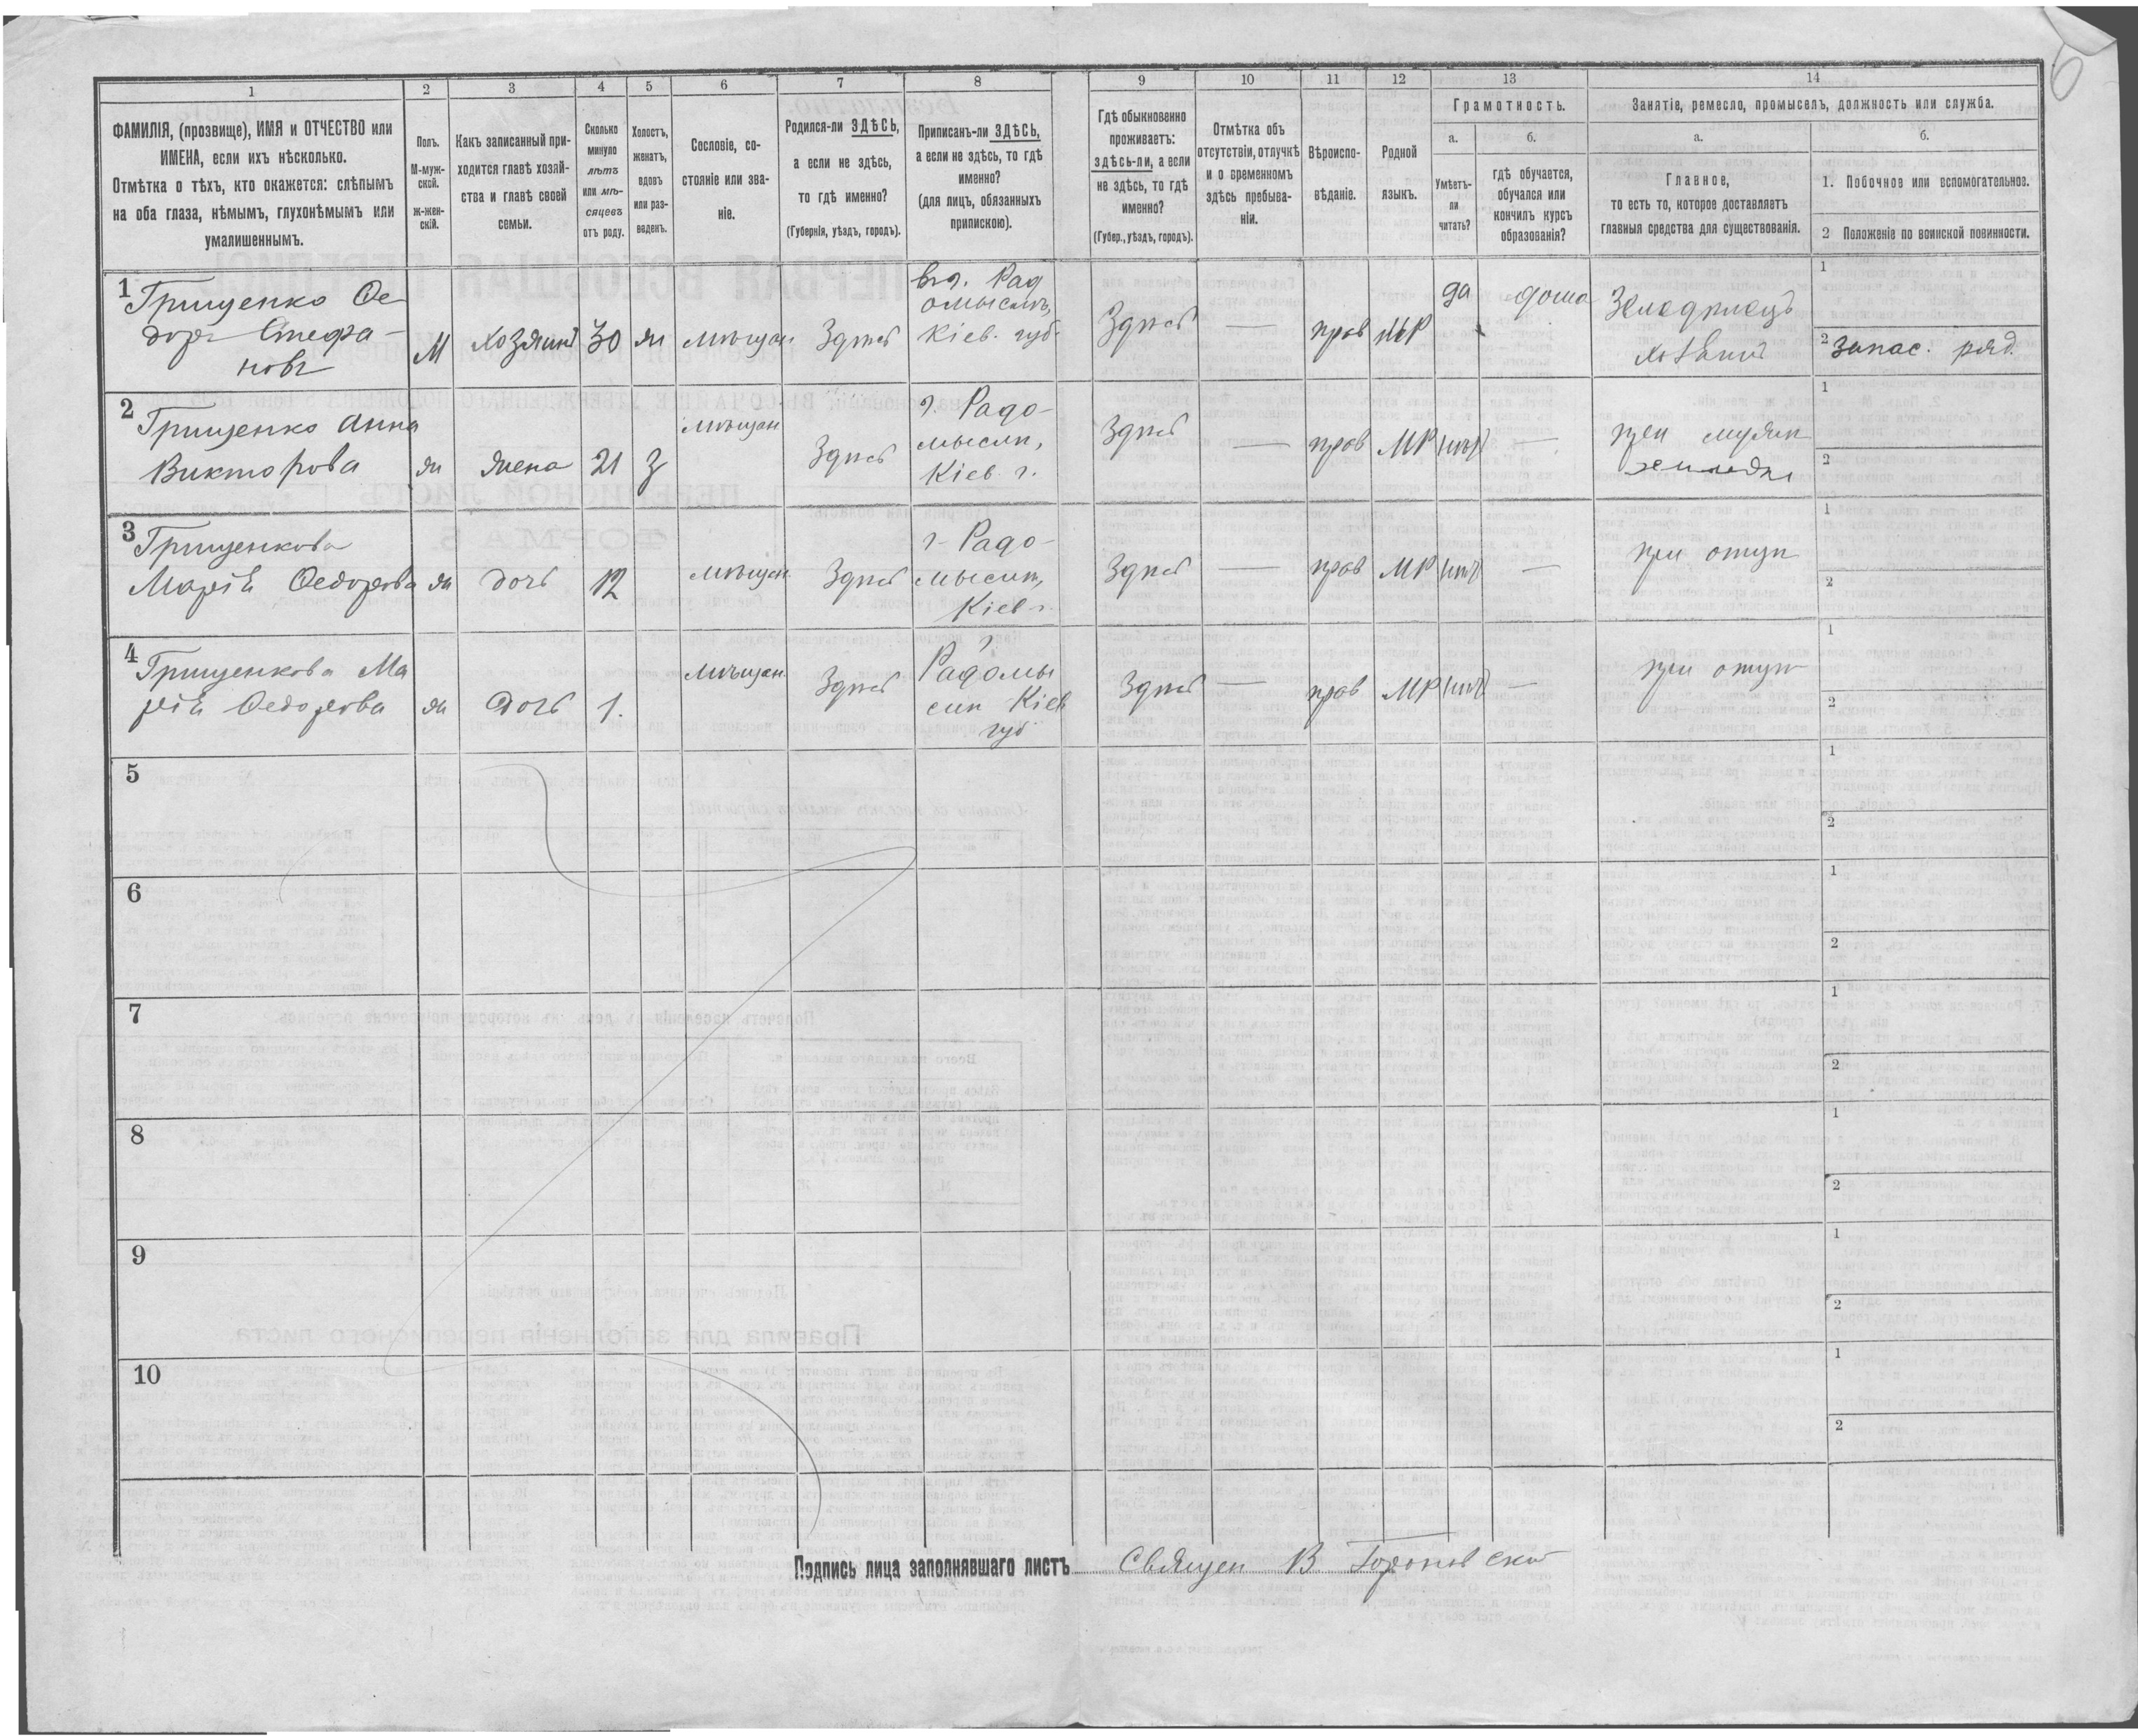 1
2
3
4
5
6
7
8
9
10
11
12
13
14
ФАМИЛІЯ, (прозвище), ИМЯ и ОТЧЕСТВО или
ИМЕНА, если ихъ нѣсколько.
Отмѣтка о тѣхъ, кто окажется: слѣпымъ
на оба глаза, нѣмымъ, глухонѣмымъ или
умалишеннымъ.
Полъ.
М-муж-
ской.
ж-жен-
скій.
Какъ записанный при-
ходится главѣ хозяй-
ства и главѣ своей
семьи.
Сколько
минуло
лѣтъ
или мѣ-
сяцевъ
отъ роду.
Холостъ,
женатъ,
вдовъ
или раз-
веденъ.
Сословіе, со-
стояніе или зва-
ніе.
Родился-ли ЗДѢСЬ,
а если не здѣсь,
то гдѣ именно?
(Губернія, уѣздъ, городъ).
Приписанъ-ли ЗДѢСЬ,
а если не здѣсь, то гдѣ
именно?
(для лицъ, обязанныхъ
припискою).
Гдѣ обыкновенно
проживаетъ:
здѣсь-ли, а если
не здѣсь, то гдѣ
именно?
(Губер., уѣздъ, городъ).
Отмѣтка объ
отсутствіи, отлучкѣ
и о временномъ
здѣсь пребыва-
ніи.
Вѣроиспо-
вѣданіе.
Родной
языкъ.
Грамотность.
а.
б.
Умѣетъ-
ли
читать?
гдѣ обучается,
обучался или
кончилъ курсъ
образованія?
Занятіе, ремесло, промыселъ, должность или служба.
а.
б.
Главное,
то есть то, которое доставляетъ
главныя средства для существованія.
1. Побочное или вспомогательное.
2 Положеніе по воинской повинности.
1
Грищенко Ѳе
доръ Стефа-
новъ
М
хозяинъ
30
ж
мѣщан.
Здѣсь
въ г. Рад
омыслѣ,
Кіев. губ.
Здѣсь
—
прав
МР
да
дома
Земледѣлецъ
хозяинъ
1
2
запас. ряд.
2
Грищенко Анна
Викторова
ж
жена
21
З
мѣщан
Здѣсь
г. Радо-
мысли,
Кіев. г.
Здѣсь
—
прав
МР
нѣт
—
при мужѣ
1
2
3
Грищенкова
Марія Ѳедорова
ж
дочь
12
мѣщан.
Здѣсь
г. Радо-
мысли,
Кіев г.
Здѣсь
—
прав
МР
нѣт
—
при отцѣ
1
2
4
Грищенкова Ма
рія Ѳедорова
ж
дочь
1.
мѣщан.
Здѣсь
г
Радомы
сли Кіев
губ
Здѣсь
—
прав
МР
нѣт
—
при отцѣ
1
2
5
1
2
6
1
2
7
1
2
8
1
2
9
1
2
10
1
2
Подпись лица заполнявшаго листъ Священ В.